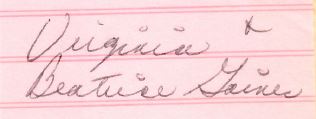 Virginia &
Beatrice Gaines